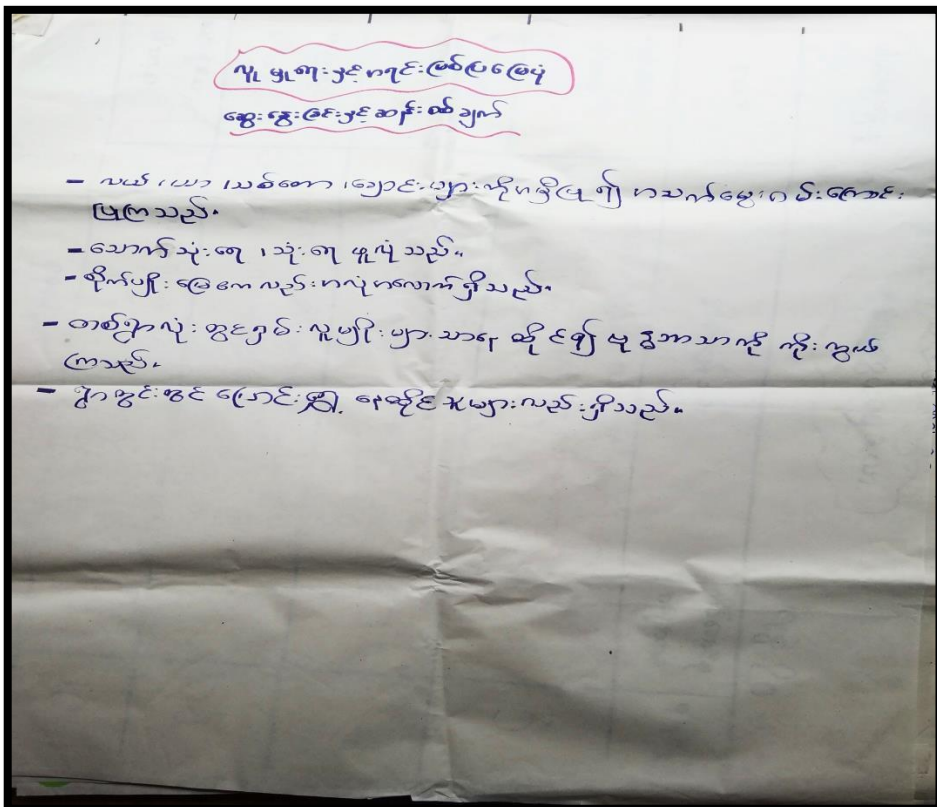 လူမှုရေးနှင့်အရင်းမြစ်ပြမြေပုံ
ဆွေးနွေးခြင်းနှင့်ဆန်းစစ်ချက်
- လယ်၊ယာ၊သစ်တော၊ချောင်းများကိုအမှီပြု၍ အသက်မွေးဝမ်းကြောင်း
ပြုကြသည်။
- သောက်သုံးရေ၊သုံးရေ ဖူလုံသည်။
- စိုက်ပျိုးမြေကလည်းအလုံအလောက်ရှိသည်။
- တစ်ရွာလုံးတွင်ရှမ်းလူမျိုးများသာနေထိုင်၍ ဗုဒ္ဓဘာသာကို ကိုးကွယ်
ကြသည်။
- ရွာတွင်းတွင် ပြောင်းရွှေ့ နေထိုင်သူများလည်းရှိသည်။